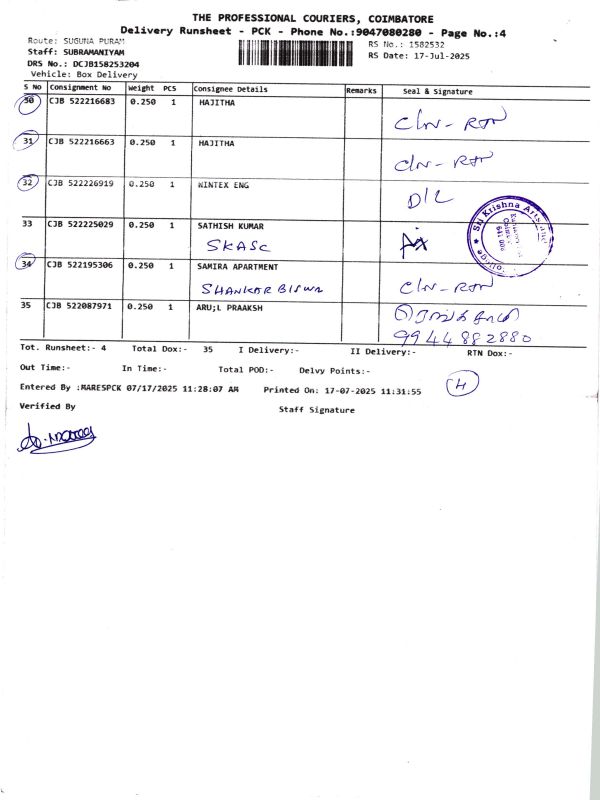 THE PROFESSIONAL COURIERS, COIMBATORE
Delivery Runsheet - PCK - Phone No.:9047080280 - Page No.:4
Route: SUGUNA PURAM
RS No.: 1582532
Staff: SUBRAMANIYAM
RS Date: 17-Jul-2025
DRS No.: DCJB158253204
Vehicle: Box Delivery
S No Consignment No Weight PCS Consignee Details Remarks Seal & Signature
30 CJB 522216683 0.250 1 HAJITHA
Cln - RTN
31 CJB 522216663 0.250 1 HAJITHA
Cln - RTN
32 CJB 522226919 0.250 1 WINTEX ENG
D/L
33 CJB 522225029 0.250 1 SATHISH KUMAR
SKASC
Sri Krishna Arts and
College
641 008
34 CJB 522195306 0.250 1 SAMIRA APARTMENT
SHANKAR BISWA
Cln - RTN
35 CJB 522087971 0.250 1 ARU;L PRAAKSH
9944882880
Tot. Runsheet:- 4 Total Dox:- 35 I Delivery:- II Delivery:- RTN Dox:-
Out Time:- In Time:- Total POD:- Delvy Points:-
4
Entered By :MARESPCK 07/17/2025 11:28:07 AM Printed On: 17-07-2025 11:31:55
Verified By
Staff Signature